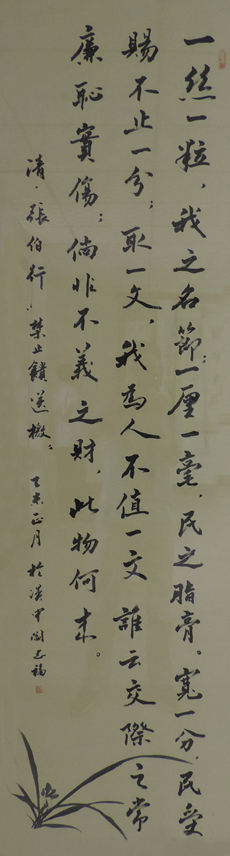 一丝一粒，我之名節；一厘一毫，民之脂膏。寬一分，民受
賜不止一分；取一文，我為人不值一文 誰云交際之常
廉恥實傷；倘非不義之財，此物何来。
清·張伯行·禁止饋送檄。
乙未正月